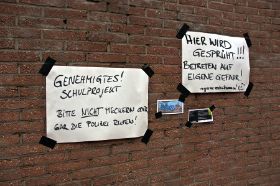 GENEHMIGTES!
SCHULPROJEKT
BITTE NICHT MECKERN ODER
GAR DIE POLIZEI RUFEN!
HIER WIRD
GESPRÜHT!!!
BETRETEN AUF
EIGENE GEFAHR!